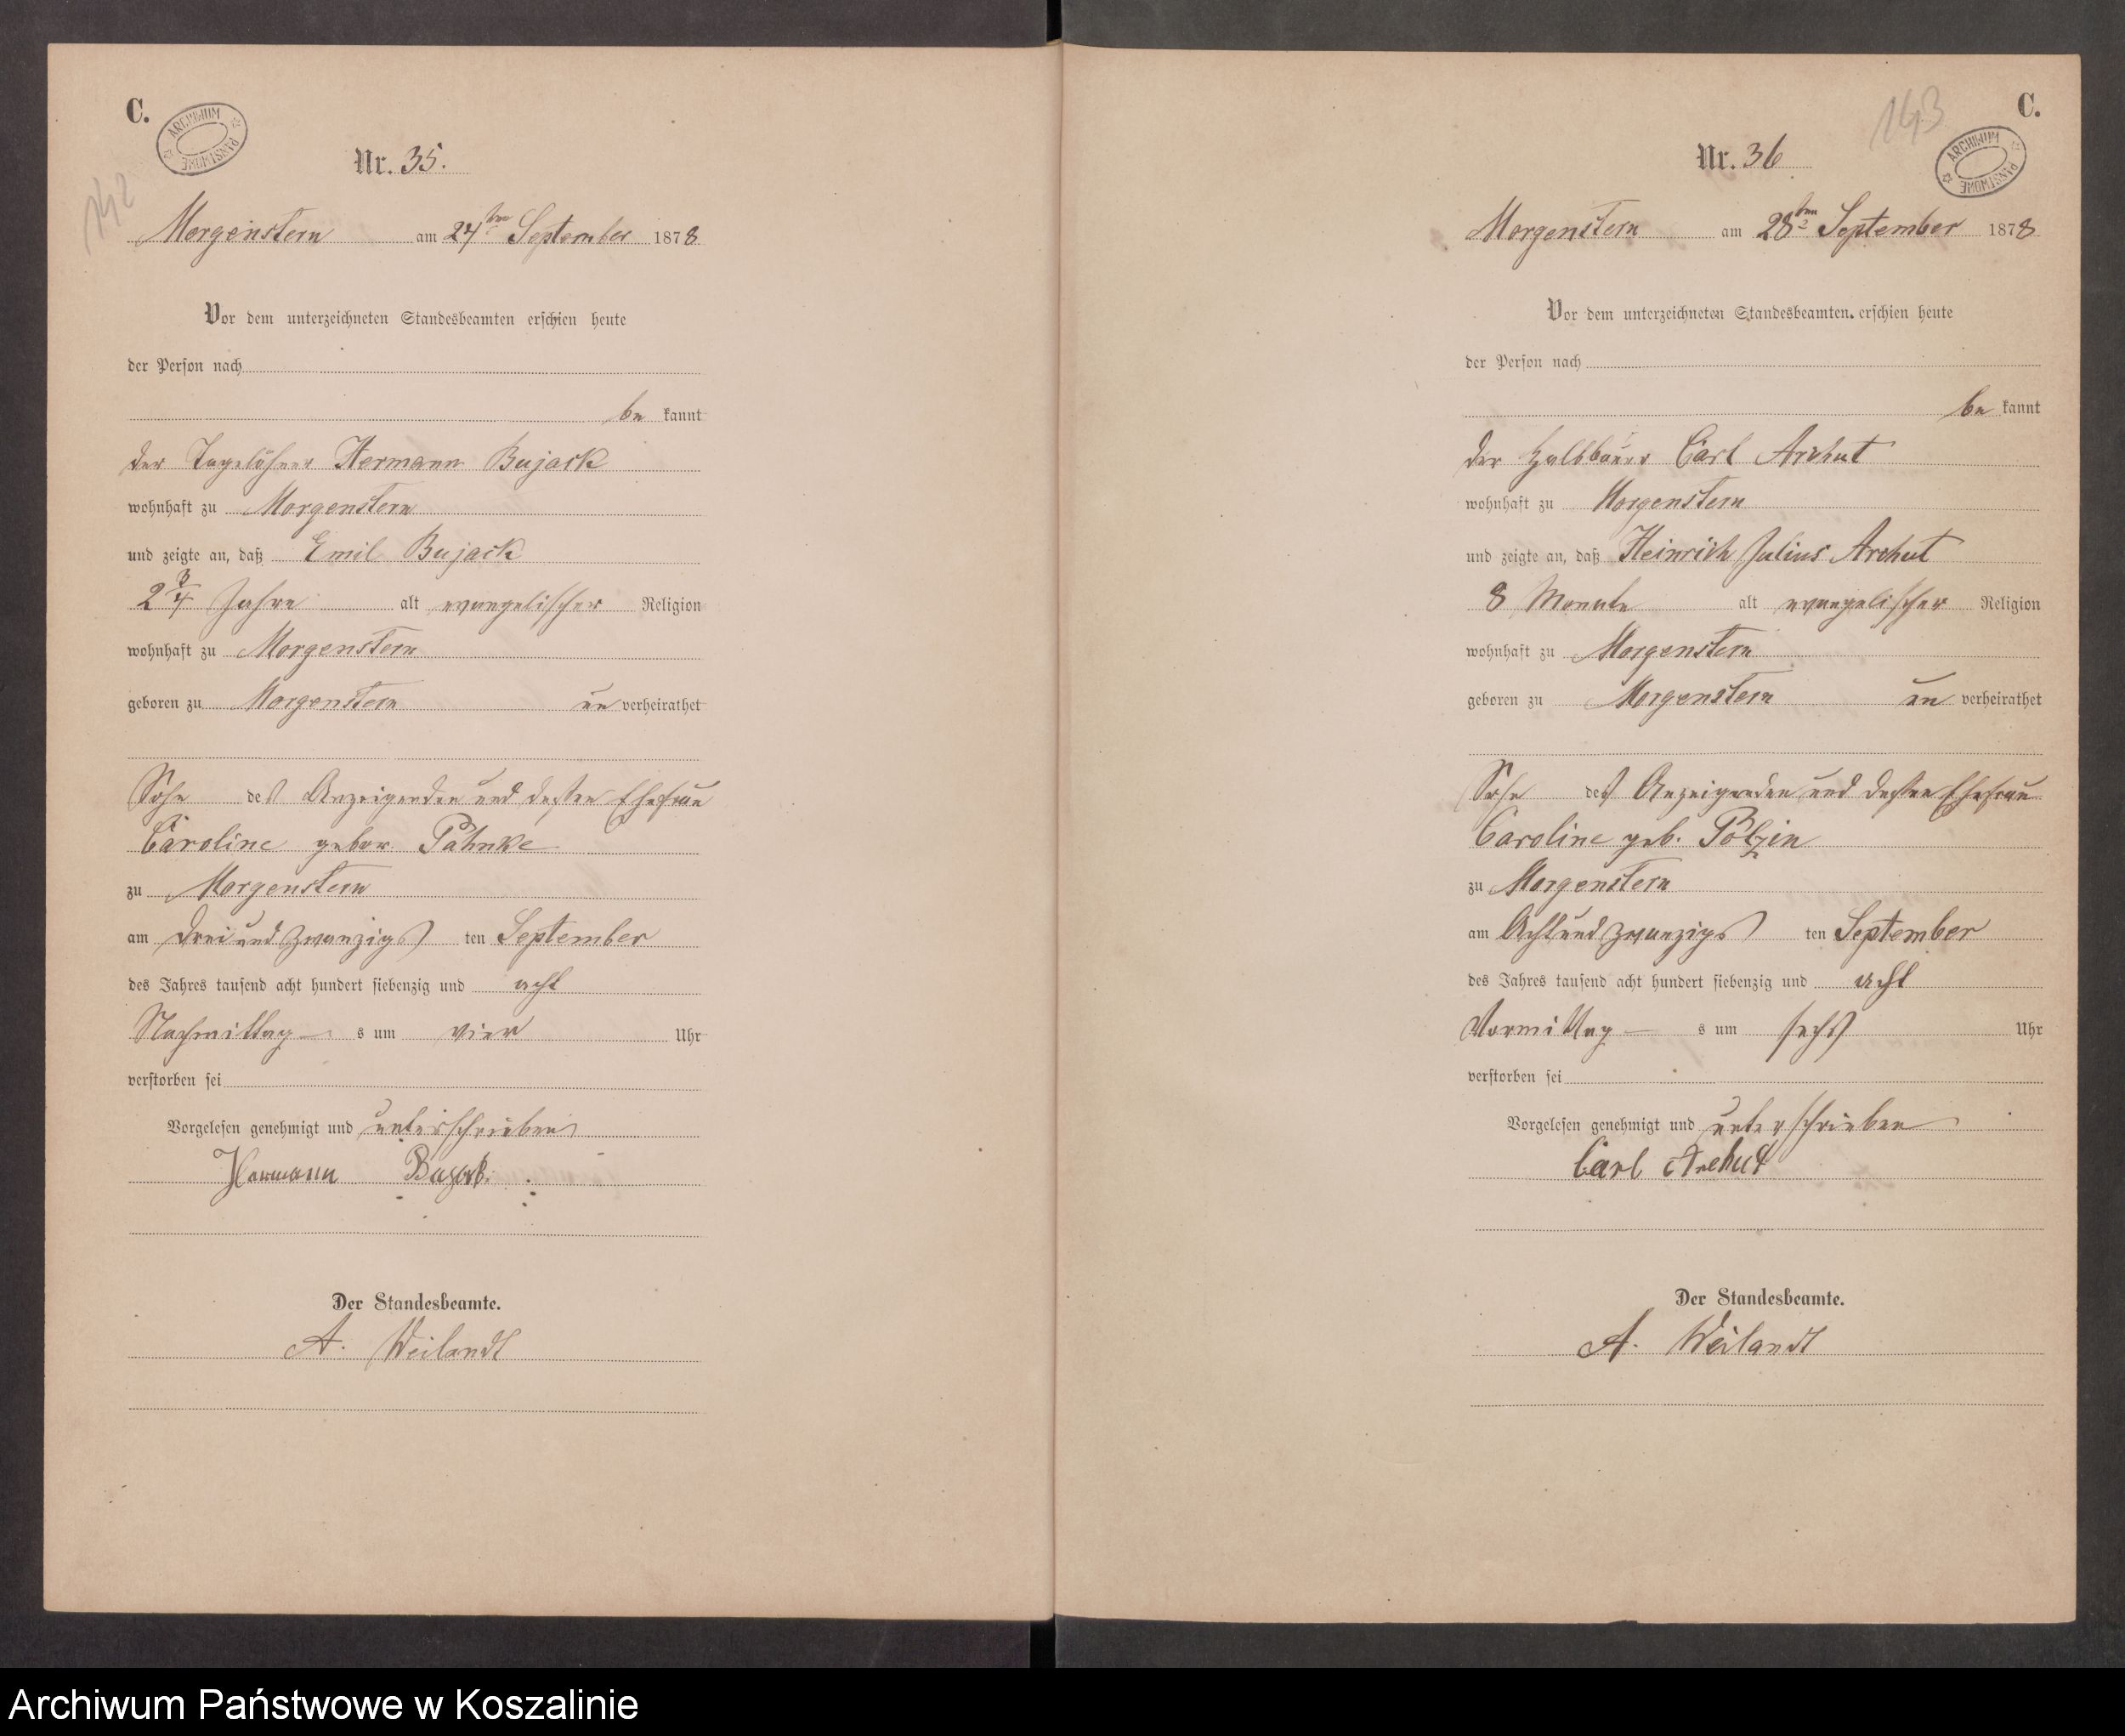 C.
ARCHIWUM PAŃSTWOWE
142
Nr. 35.
Morgenstern am 24ten September 1878
Vor dem unterzeichneten Standesbeamten erschien heute
der Person nach
be kannt
der Tagelöhner Hermann Bujack
wohnhaft zu Morgenstern
und zeigte an, daß Emil Bujack
2 3/4 Jahre alt evangelischer Religion
wohnhaft zu Morgenstern
geboren zu Morgenstern un verheirathet
Sohn des Anzeigenden und dessen Ehefrau
Caroline gebor. Pahnke
zu Morgenstern
am drei und zwanzigs ten September
des Jahres tausend acht hundert siebenzig und acht
Nachmittag s um vier Uhr
verstorben sei
Vorgelesen genehmigt und unterschrieben
Hermann Bujack
Der Standesbeamte.
A. Weilandt
143
C.
ARCHIWUM PAŃSTWOWE
Nr. 36
Morgenstern am 28ten September 1878
Vor dem unterzeichneten Standesbeamten erschien heute
der Person nach
be kannt
der Halbbauer Carl Archut
wohnhaft zu Morgenstern
und zeigte an, daß Heinrich Julius Archut
8 Monate alt evangelischer Religion
wohnhaft zu Morgenstern
geboren zu Morgenstern un verheirathet
Sohn des Anzeigenden und dessen Ehefrau
Caroline geb. Polzin
zu Morgenstern
am Acht und zwanzigs ten September
des Jahres tausend acht hundert siebenzig und acht
Vormittag s um sechs Uhr
verstorben sei
Vorgelesen genehmigt und unterschrieben
Carl Archut
Der Standesbeamte.
A. Weilandt
Archiwum Państwowe w Koszalinie